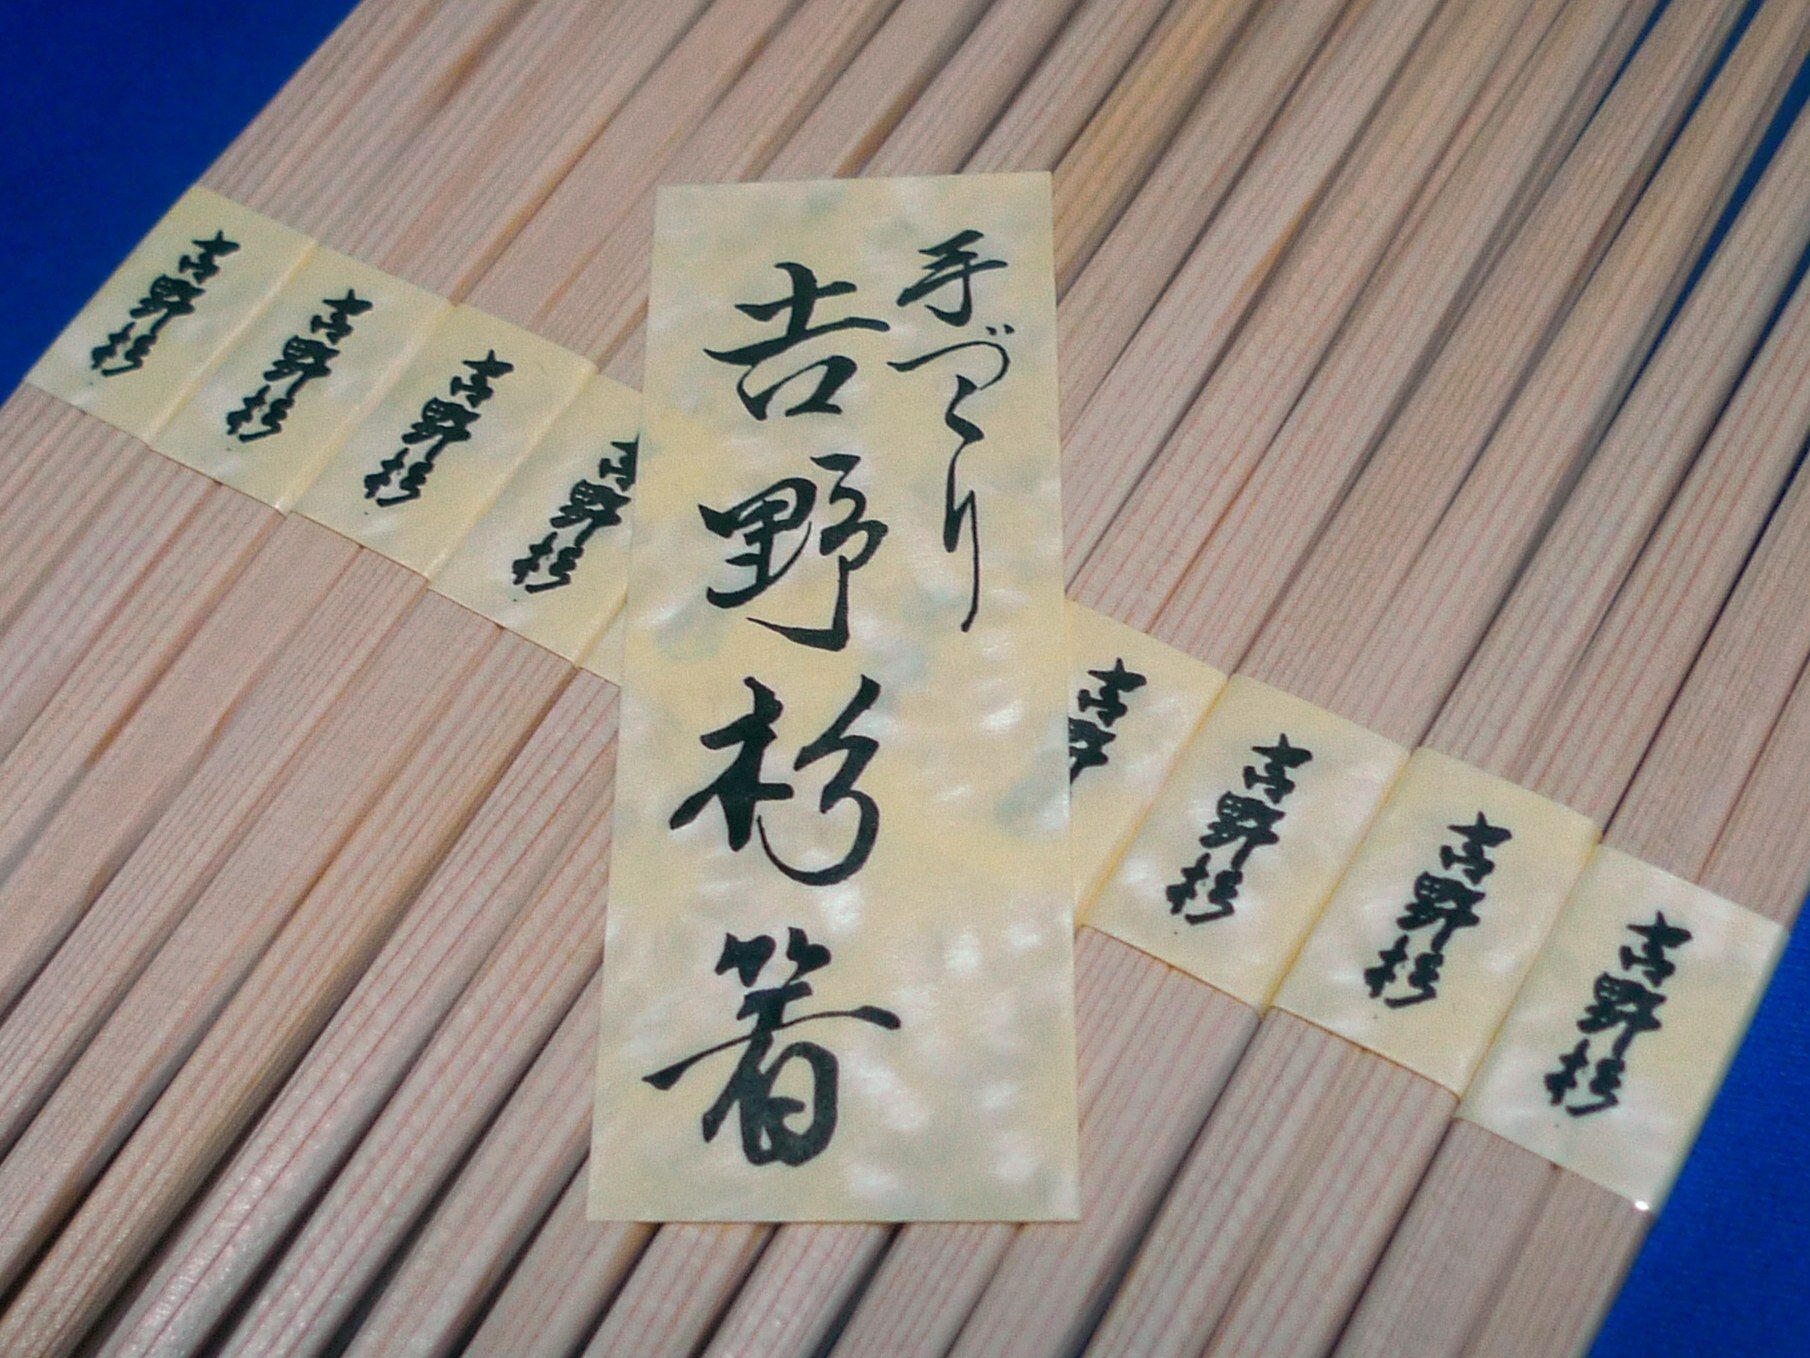 手づくり
吉野杉箸
吉野杉
吉野杉
吉野杉
吉野杉
吉野
吉野杉
吉野杉
吉野杉